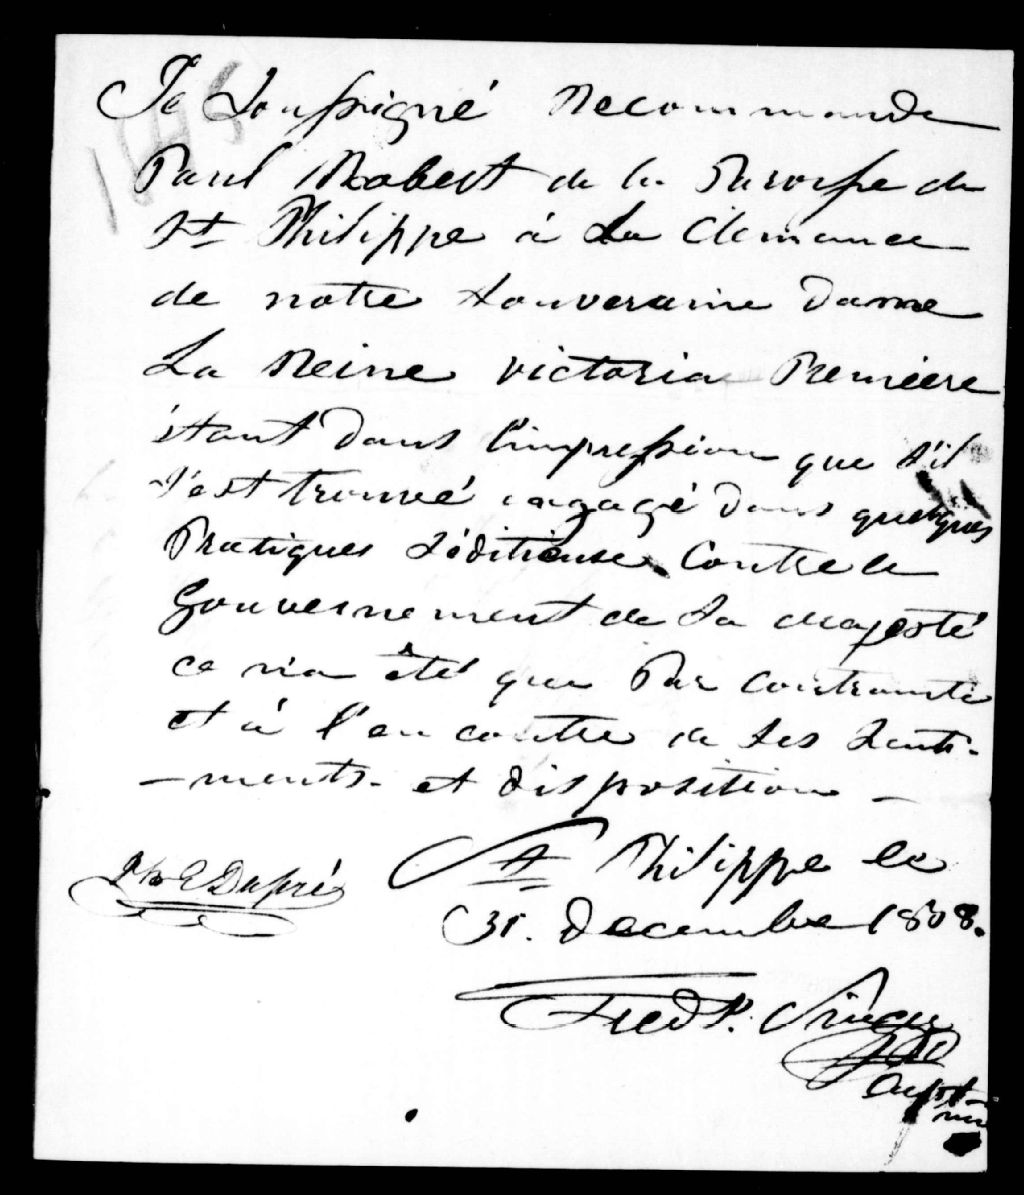 Je Soussigné Recommande
Paul Robert de la Paroisse de
St Philippe à La Clemance
de notre Souveraine Dame
La Reine Victoria Premiere
étant Dans l'impression que s'il
s'est trouvé engagé Dans quelques
Pratiques Séditieuse Contre le
Gouvernement de Sa Majesté
ce n'a été que Par Contrainte
et à l'encontre de Ses Senti-
-ments et disposition -
St Philippe le
31. Decembre 1808.
E Dupré
Fred P.